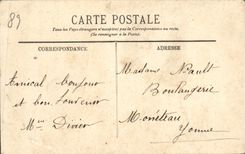 89
CARTE POSTALE
Tous les pays étrangers n'acceptent pas la Correspondance au recto.
(Se renseigner à la Poste).
CORRESPONDANCE
ADRESSE
Amical bonjour
et bon souvenir
Madame Nault
Boulangerie
Monéteau
Yonne